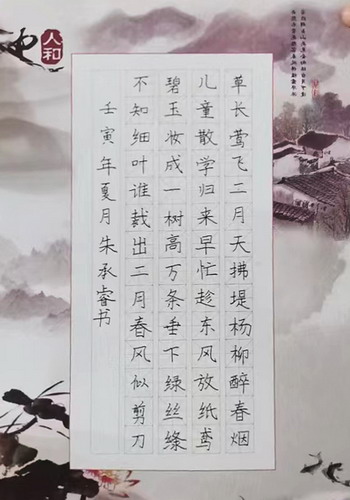 草长莺飞二月天拂堤杨柳醉春烟
儿童散学归来早忙趁东风放纸鸢
碧玉妆成一树高万条垂下绿丝绦
不知细叶谁裁出二月春风似剪刀
壬寅年夏月朱承睿书
人和